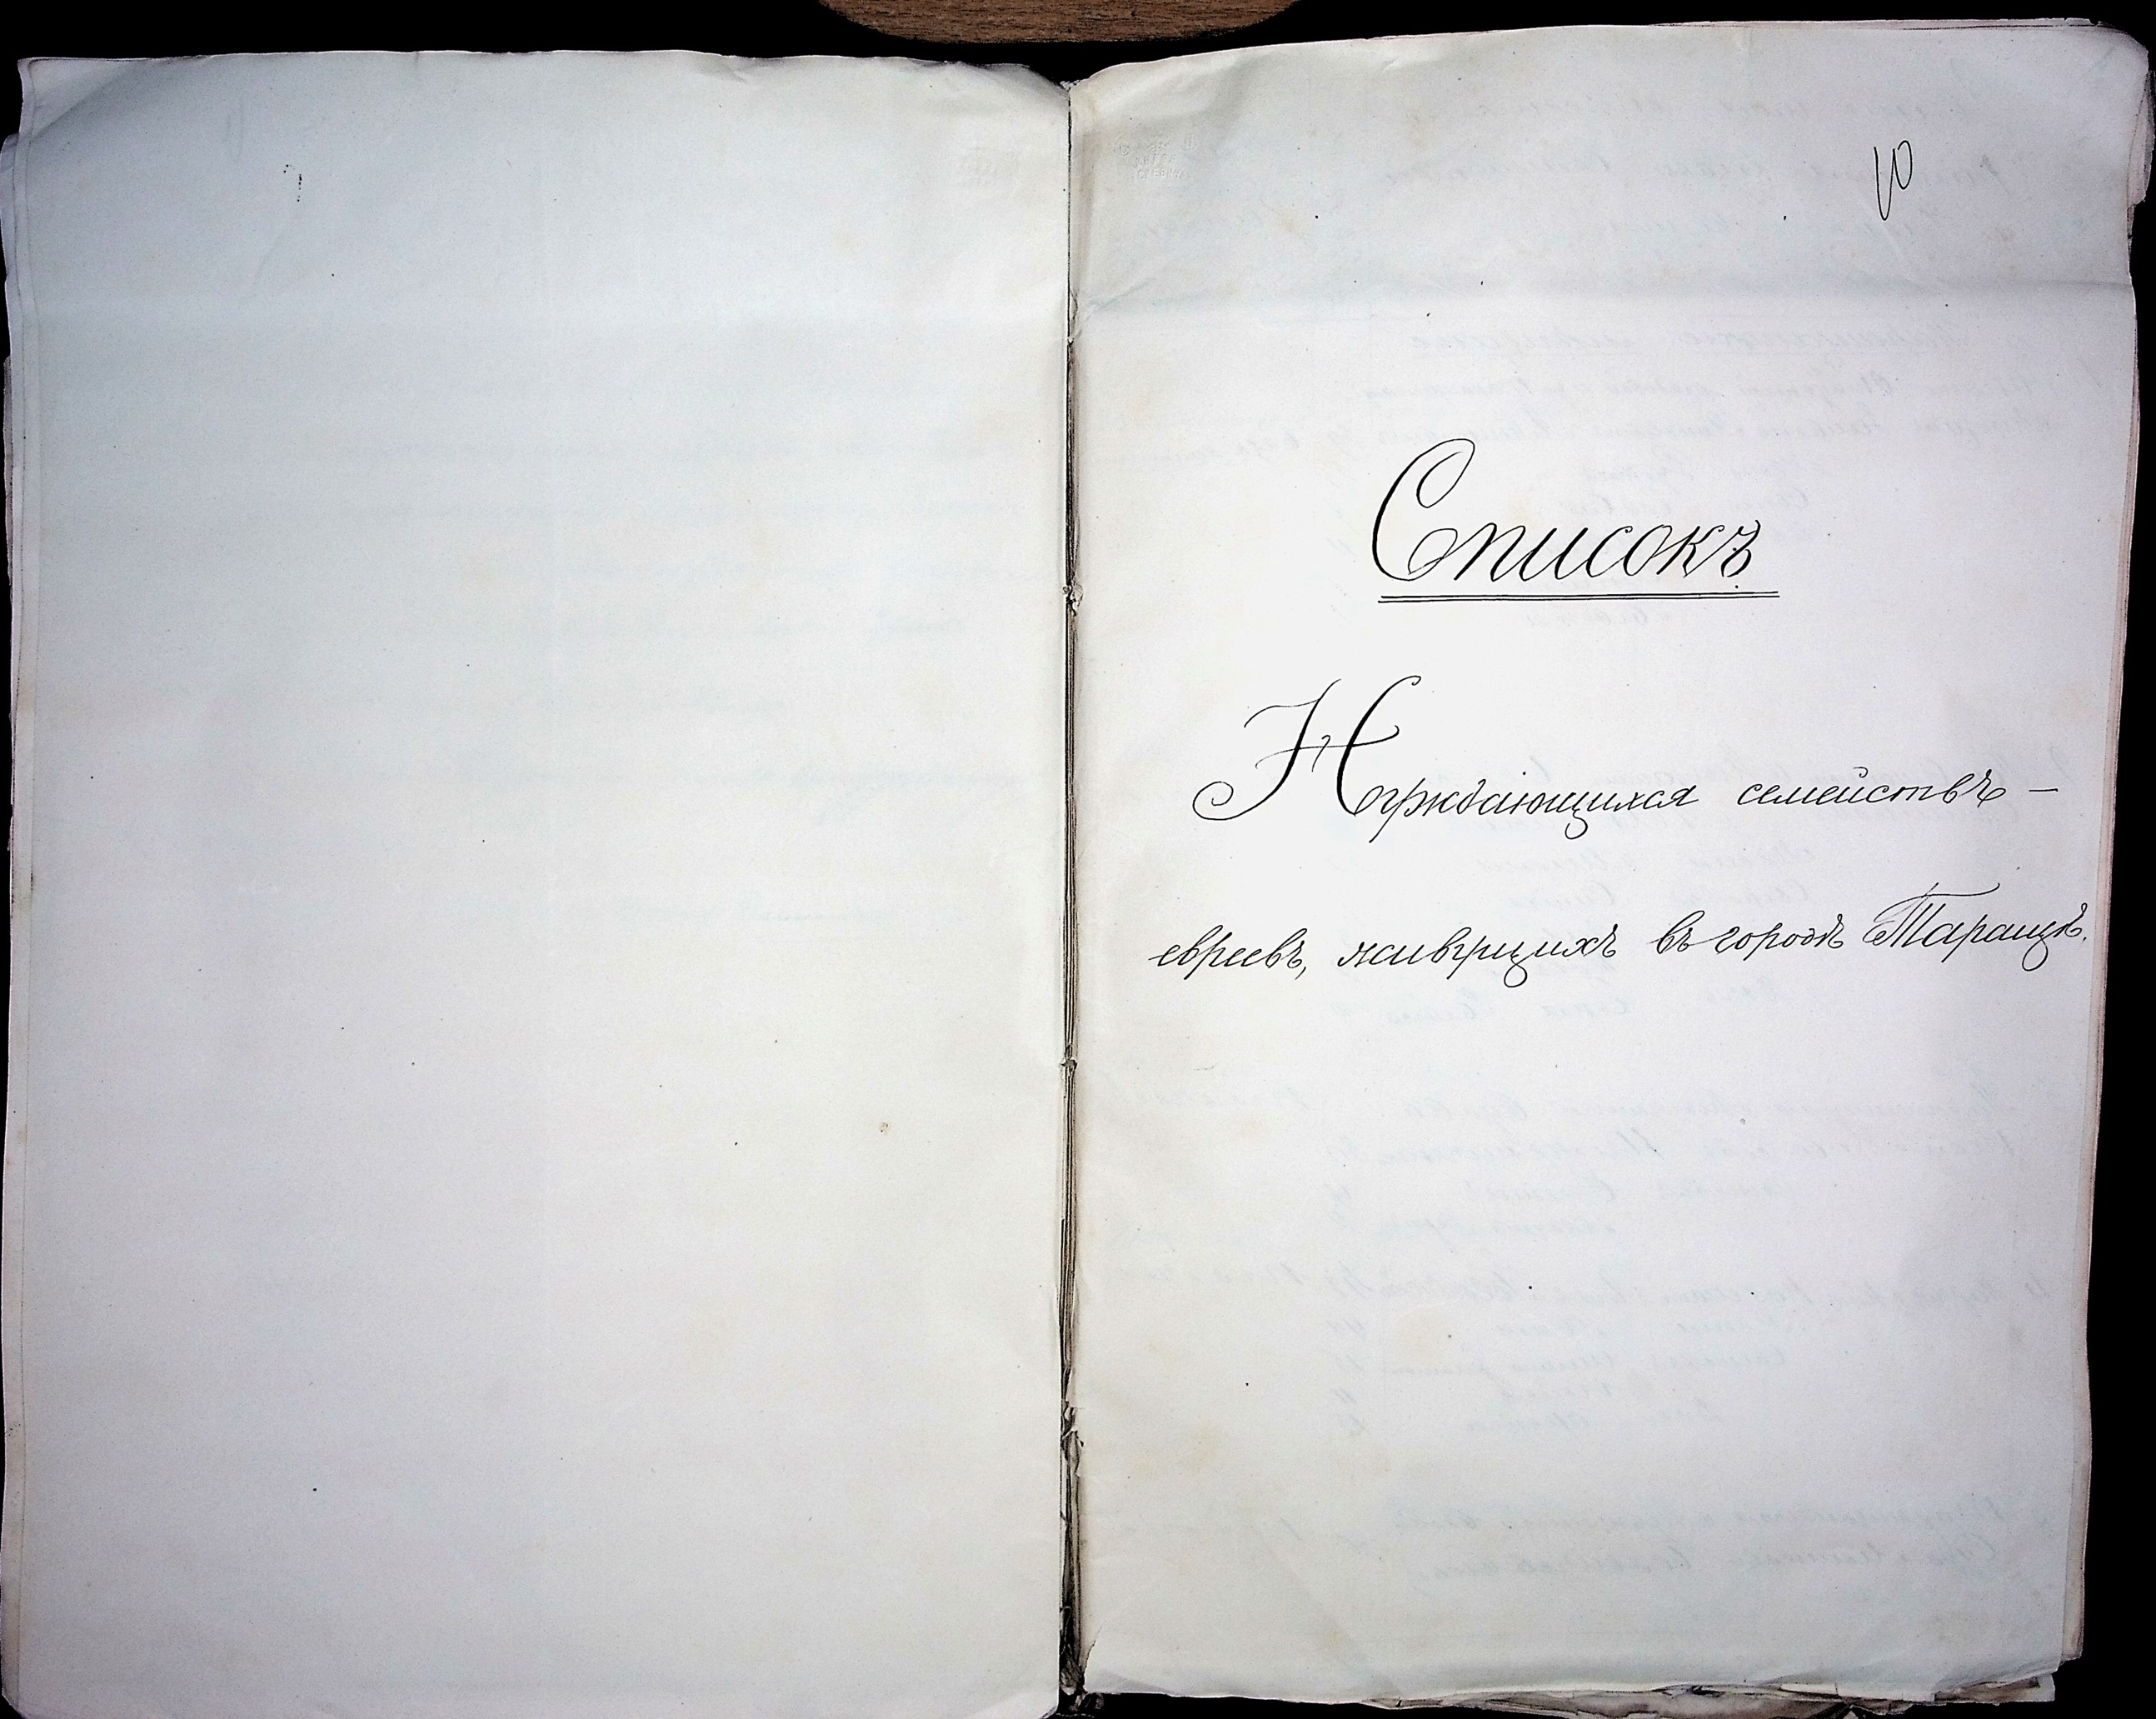 10
Списокъ
Нуждающихся семействъ —
евреевъ, живущихъ въ городѣ Таращѣ.